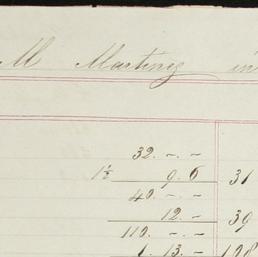 M Marting in
32. -. -
1½ 9. 6 31
40. -. -
12. - 39
110. -. -
1. 13. - 108